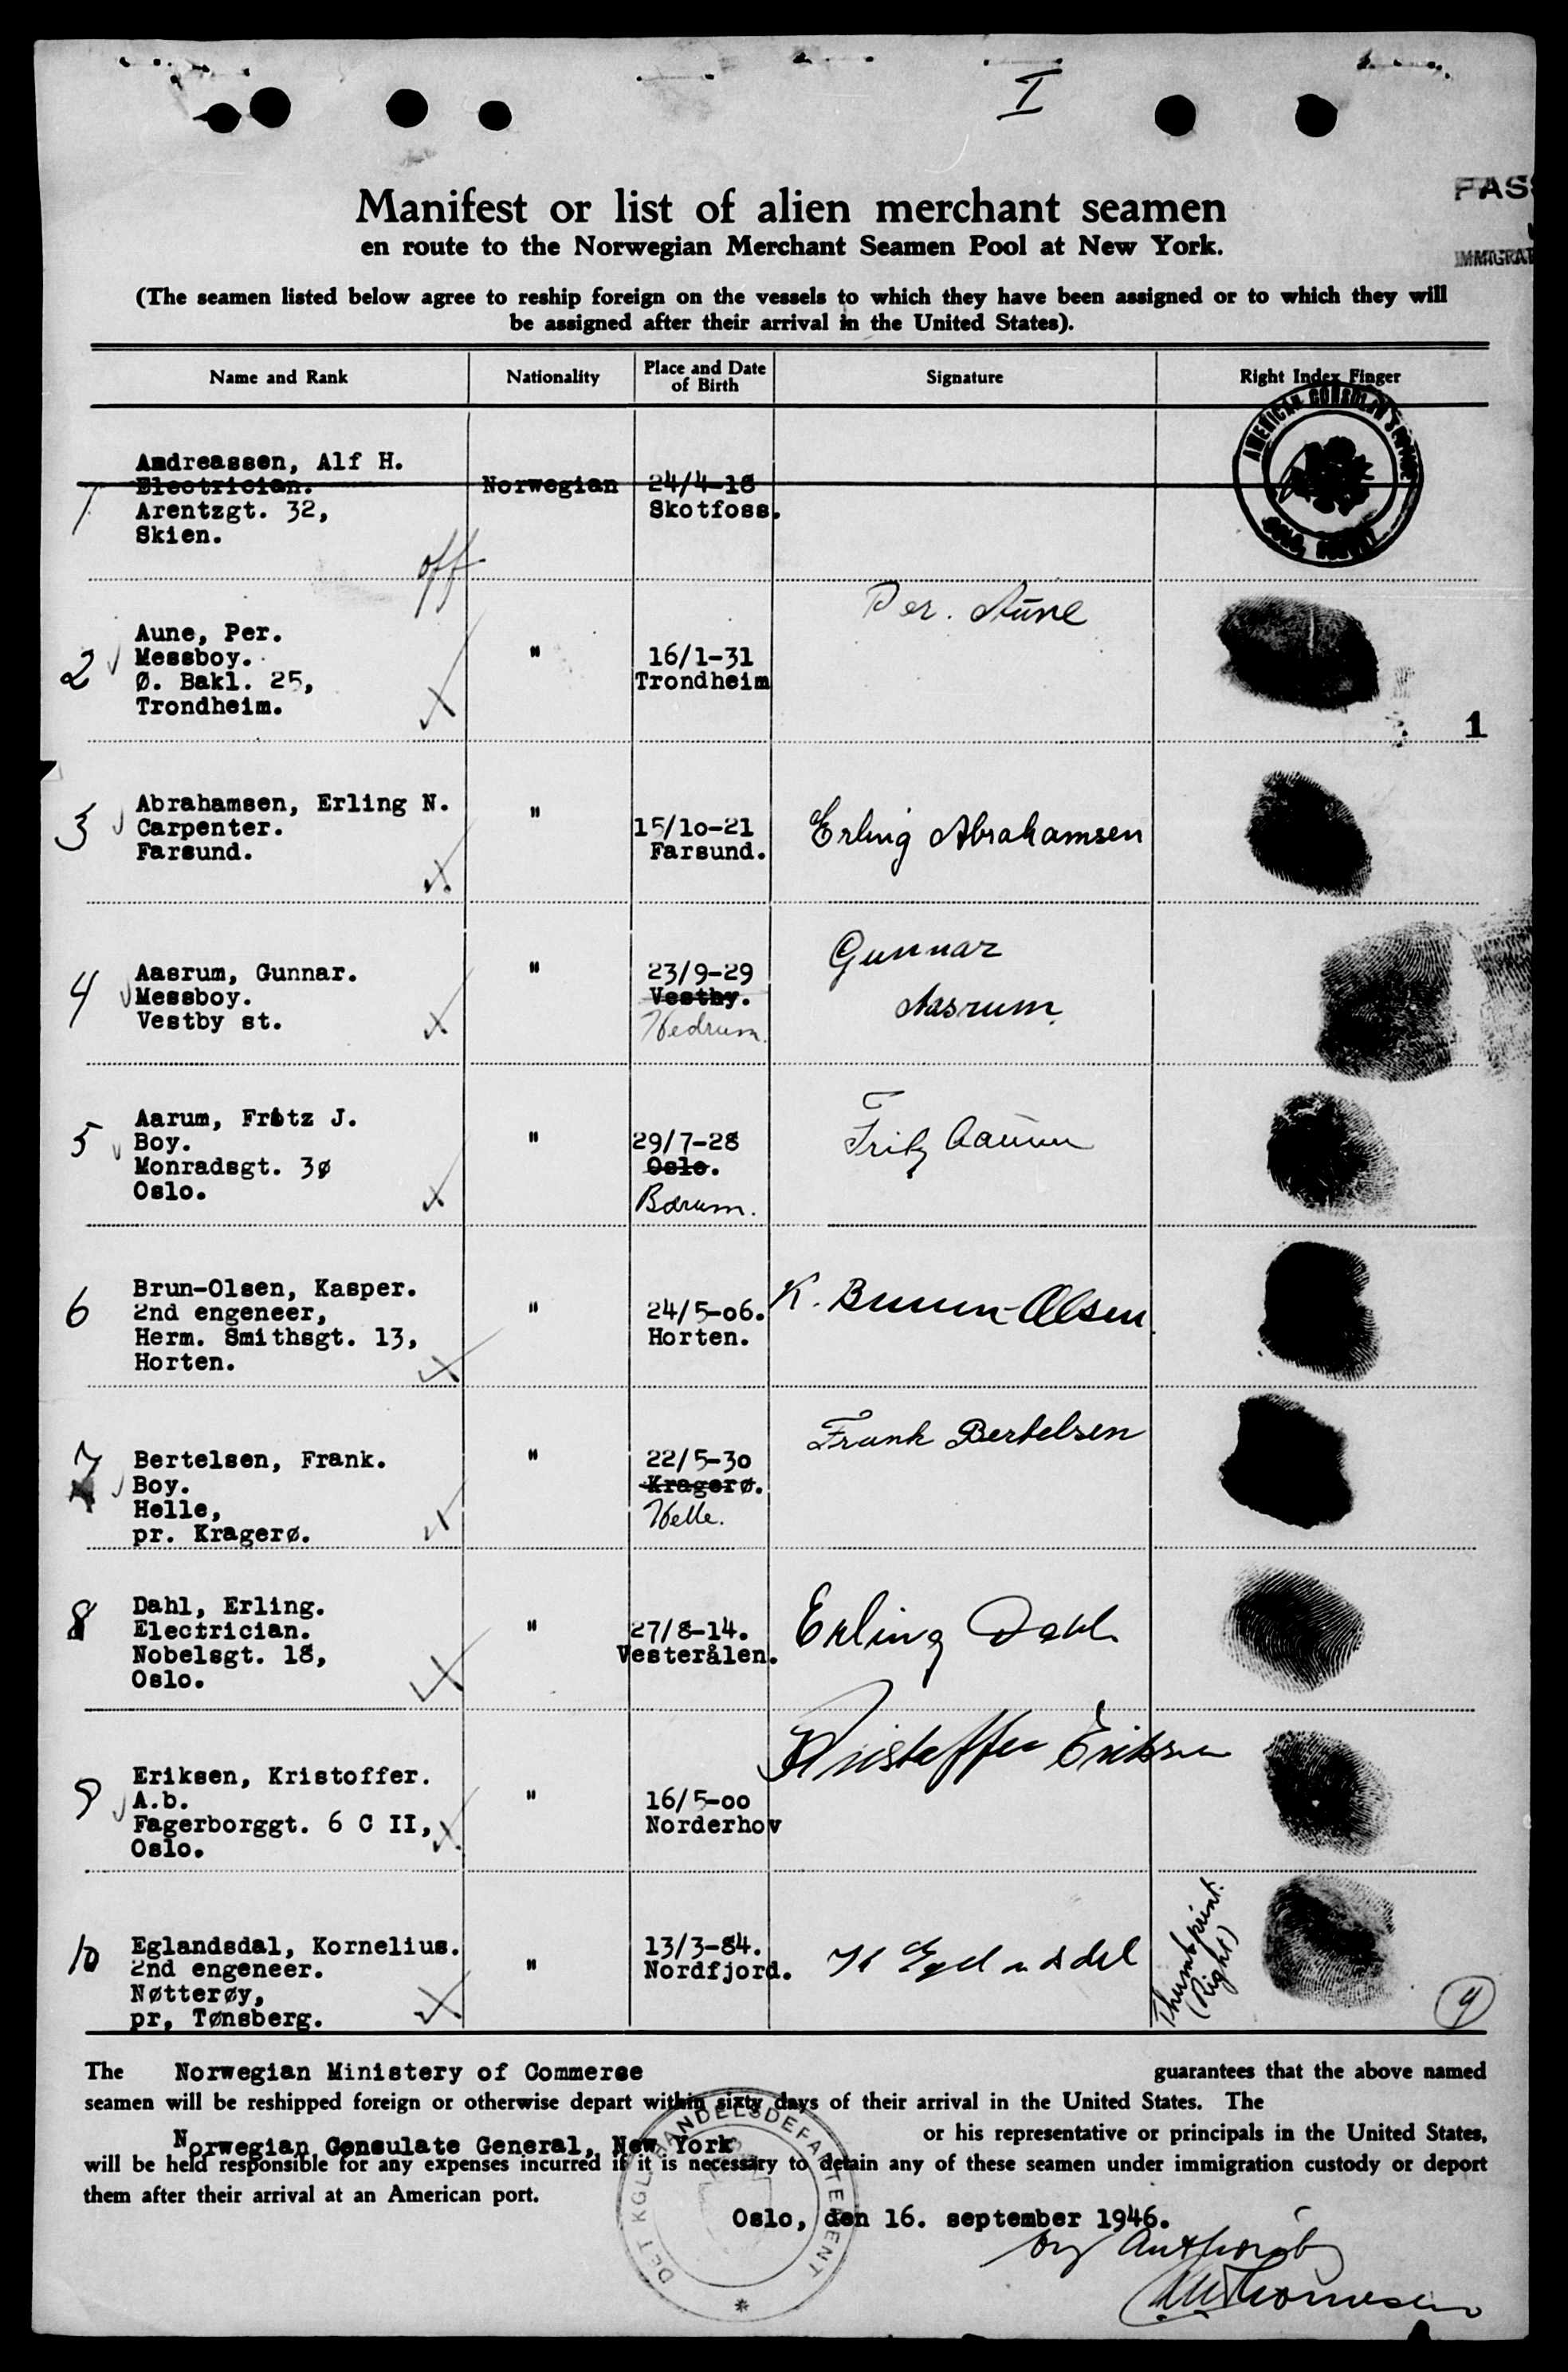 I
PAS
IMMIGRAT
Manifest or list of alien merchant seamen
en route to the Norwegian Merchant Seamen Pool at New York.
(The seamen listed below agree to reship foreign on the vessels to which they have been assigned or to which they will
be assigned after their arrival in the United States).
Name and Rank
Nationality
Place and Date
of Birth
Signature
Right Index Finger
AMERICAN CONSULAR SERVICE
OSLO, NORWAY
1
Andreassen, Alf H.
Electrician.
Arentzgt. 32,
Skien.
off
Norwegian
24/4-18
Skotfoss.
2
Aune, Per.
Messboy.
Ø. Bakl. 25,
Trondheim.
"
16/1-31
Trondheim
Per. Aune
1
3
Abrahamsen, Erling N.
Carpenter.
Farsund.
"
15/10-21
Farsund.
Erling Abrahamsen
4
Aasrum, Gunnar.
Messboy.
Vestby st.
"
23/9-29
Vestby.
Hedrum.
Gunnar
Aasrum.
5
Aarum, Fritz J.
Boy.
Monradsgt. 3ø
Oslo.
"
29/7-28
Oslo.
Bærum.
Fritz Aarum
6
Brun-Olsen, Kasper.
2nd engeneer,
Herm. Smithsgt. 13,
Horten.
"
24/5-06.
Horten.
K. Bruun-Olsen
7
Bertelsen, Frank.
Boy.
Helle,
pr. Kragerø.
"
22/5-30
Kragerø.
Helle.
Frank Bertelsen
8
Dahl, Erling.
Electrician.
Nobelsgt. 18,
Oslo.
"
27/8-14.
Vesterålen.
Erling Dahl
9
Eriksen, Kristoffer.
A.b.
Fagerborggt. 6 C II,
Oslo.
"
16/5-00
Norderhov
Kristoffer Eriksen
10
Eglandsdal, Kornelius.
2nd engeneer.
Nøtterøy,
pr, Tønsberg.
"
13/3-84.
Nordfjord.
K Eglandsdal
Thumb print.
(Right)
9
The Norwegian Ministery of Commerse guarantees that the above named
seamen will be reshipped foreign or otherwise depart within sixty days of their arrival in the United States. The
Norwegian Consulate General, New York or his representative or principals in the United States,
will be held responsible for any expenses incurred if it is necessary to detain any of these seamen under immigration custody or deport
them after their arrival at an American port.
DET KGL. HANDELSDEPARTEMENT
Oslo, den 16. september 1946.
by Authority